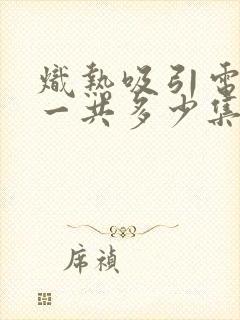 熾熱吸引電
一共多少集
席禎